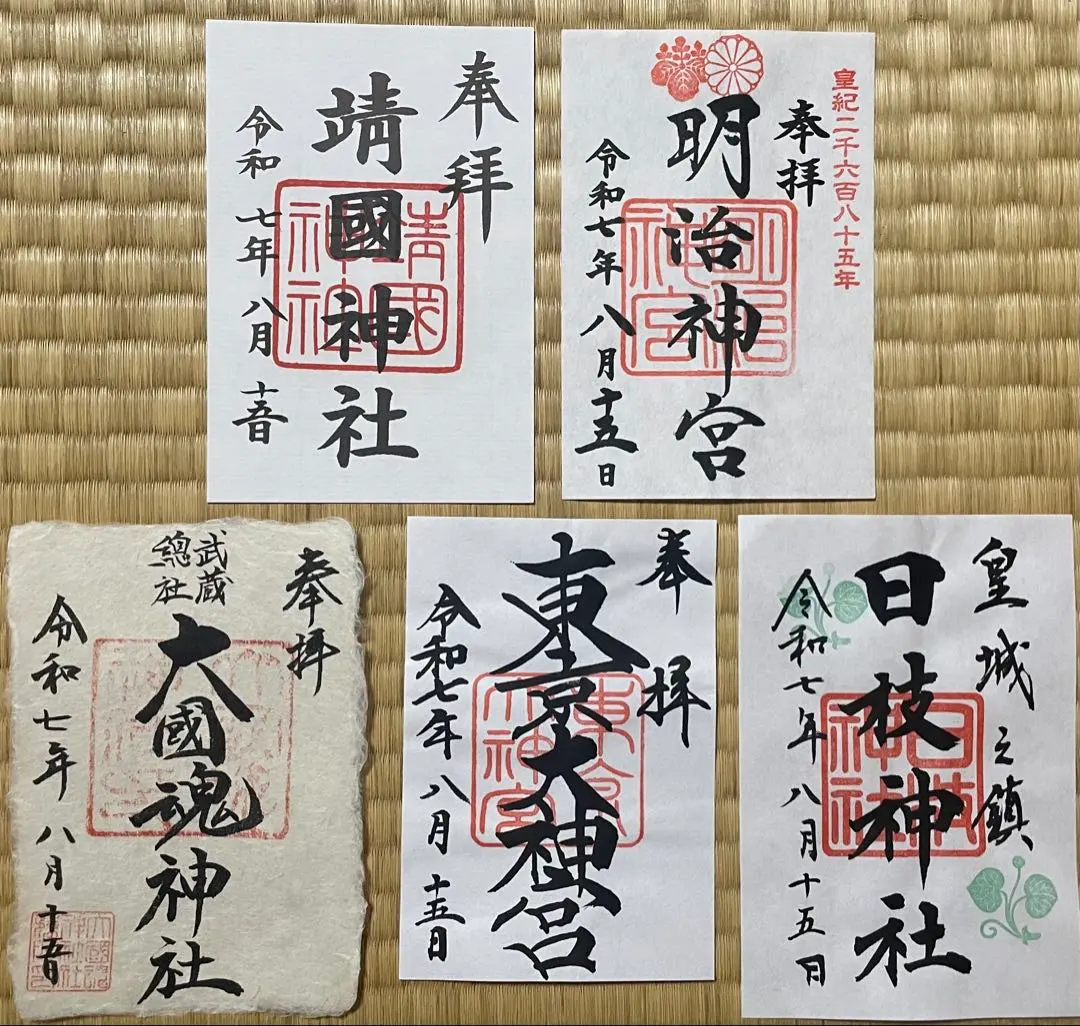 奉拝
靖國神社
靖國
神社
令和七年八月十五日
皇紀二千六百八十五年
奉拝
明治神宮
明治
神宮
令和七年八月十五日
奉拝
武蔵
總社
大國魂神社
令和七年八月十五日
奉拝
東京大神宮
東京
大神宮
令和七年八月十五日
皇城之鎮
日枝神社
日枝
神社
令和七年八月十五日